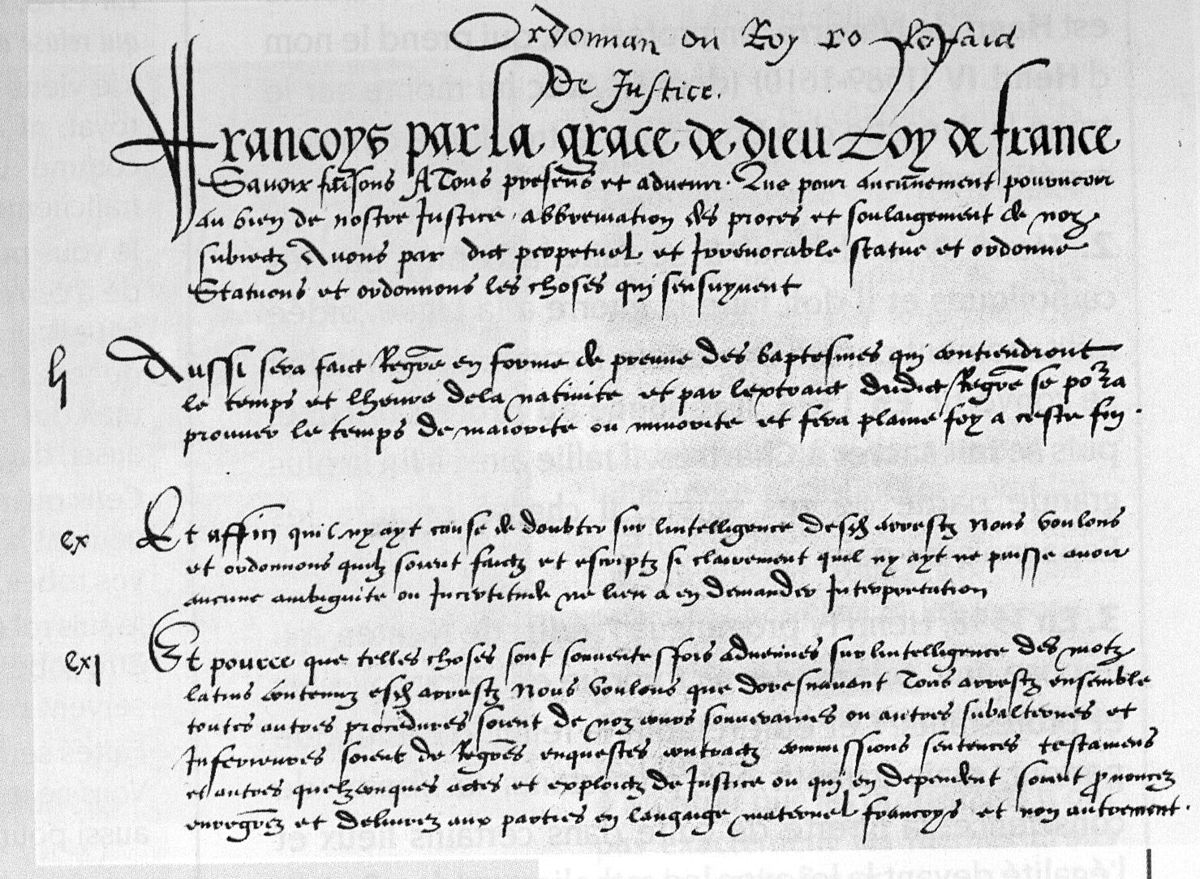 Ordonnan du Roy so le faid
De Justice.
Francoys par la grace de dieu Roy de france
Savoir faisons A Tous presens et advenir. Que pour aucunement pourveoir
au bien de nostre Justice abbreviation des proces et soulaigement de noz
subiectz Avons par dict perpetuel et Irrevocable statue et ordonne
Statuons et ordonnons les choses qui sensuyvent
lj Aussi sera faict Regre en forme de preuve des baptesmes qui contiendront
le temps et lheure dela nativite et par lextraict dudict Regre se porra
prouver le temps de maiorite ou minorite et fera plaine foy a ceste fin.
cx Et affin quil ny ayt cause de doubter sur lintelligence desd arrestz Nous voulons
et ordonnons quilz soient faictz et escriptz si clairement quil ny ayt ne puisse avoir
aucune ambiguite ou Incertitude ne lieu a en demander Interpretation
cxj Et pource que telles choses sont souventesfois advenues sur lintelligence des motz
latins contenuz esd arrestz Nous voulons que doresnavant Tous arrestz ensemble
toutes autres procedures soient de noz cours souveraines ou autres subalternes et
Inferieures soient de Regres enquestes contractz commissions sentences testamens
et autres quelzconques actes et exploictz de Justice ou qui en dependent soient pnoncez
enregrez et delivrez aux parties en langaige maternel francoys et non autrement.